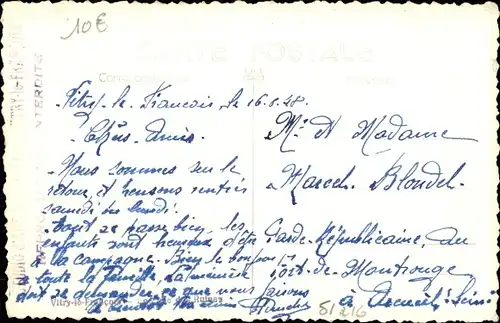 10€
CARTE POSTALE
Correspondance
Vitry-le-Francois, le 16.8.48.
Chers Amis.
Nous sommes sur le
retour, et pensons rentrer
samedi ou lundi.
Tout se passe bien, les
enfants sont heureux d'être
à la campagne. Bien le bonjour
à toute la famille. La mémère
doit se demander ce que nous faisons
A bientôt vos amis
Mr et Madame
Marcel Blondel
Garde Républicaine, du
Fort de Montrouge
à Arcueil (Seine)
81216
Vitry-le-François
INTERDITE